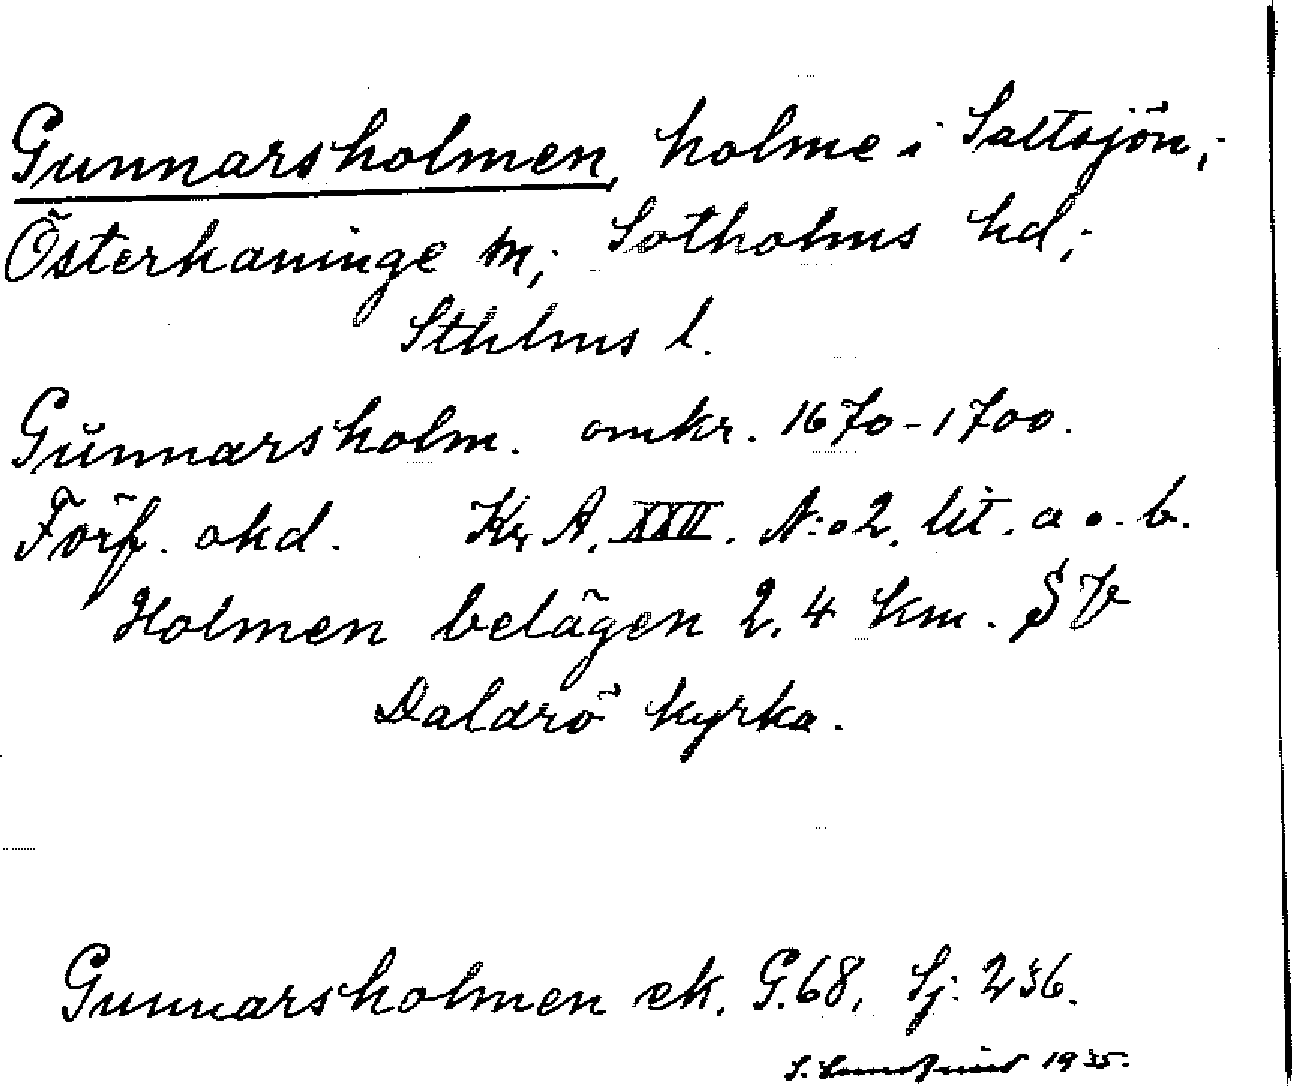 Gunnarsholmen, holme i Saltsjön,
Österhaninge sn; Sotholms hd;
Sthlms l.
Gunnarsholm. omkr. 1670-1700.
Förf. okd. Kr. A. XXV. N:o 2. lit. a o. b.
Holmen belägen 2.4 km. SV
Dalarö kyrka.
Gunnarsholmen ek. G.68, Sj. 236.
S. 1935.